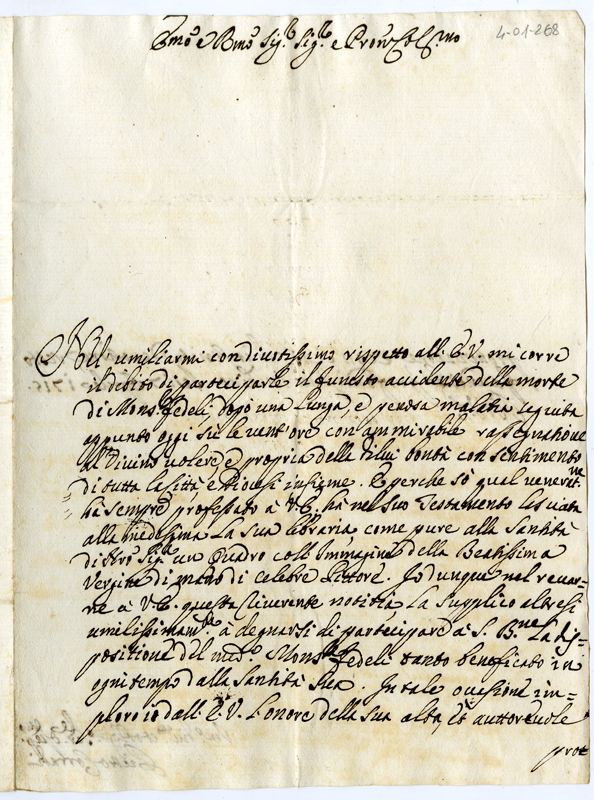 4-01-268
Emo e Rmo Sig.r Sig.r e Prone Col.mo
Nel umiliarmi con divotissimo rispetto all. E. V. mi corre
il debito di parteciparle il funesto accidente della morte
di Mons.r Fedeli, dopo una lunga, e penosa malatia seguita
appunto oggi sù le vent'ore con ammirabile rassegnatione
al Divino volere, e propria delle di lui bontà con sentimento
di tutta la Città, e Diocesi insigne. E perche sò qual venerat.ne
hà sempre professato à V.E. hà nel suo Testamento lasciata
alla medesima la sua libraria, come pure alla Santità
di Nro Sig.re un Quadro coll'Immagine della Beatissima
Vergine di mano di celebre Pittore. Io dunque nel recar=
ne à V.E. questa riverente notitia la supplico altresi
umilissimam.te à degnarsi di partecipare à S. B.ne la dis=
positione del med.o Mons.r Fedeli tanto beneficato in
ogni tempo dalla Santità Sua. In tale occasione im=
ploro io dall. E. V. l'onore della sua alta, et auttorevole
prot